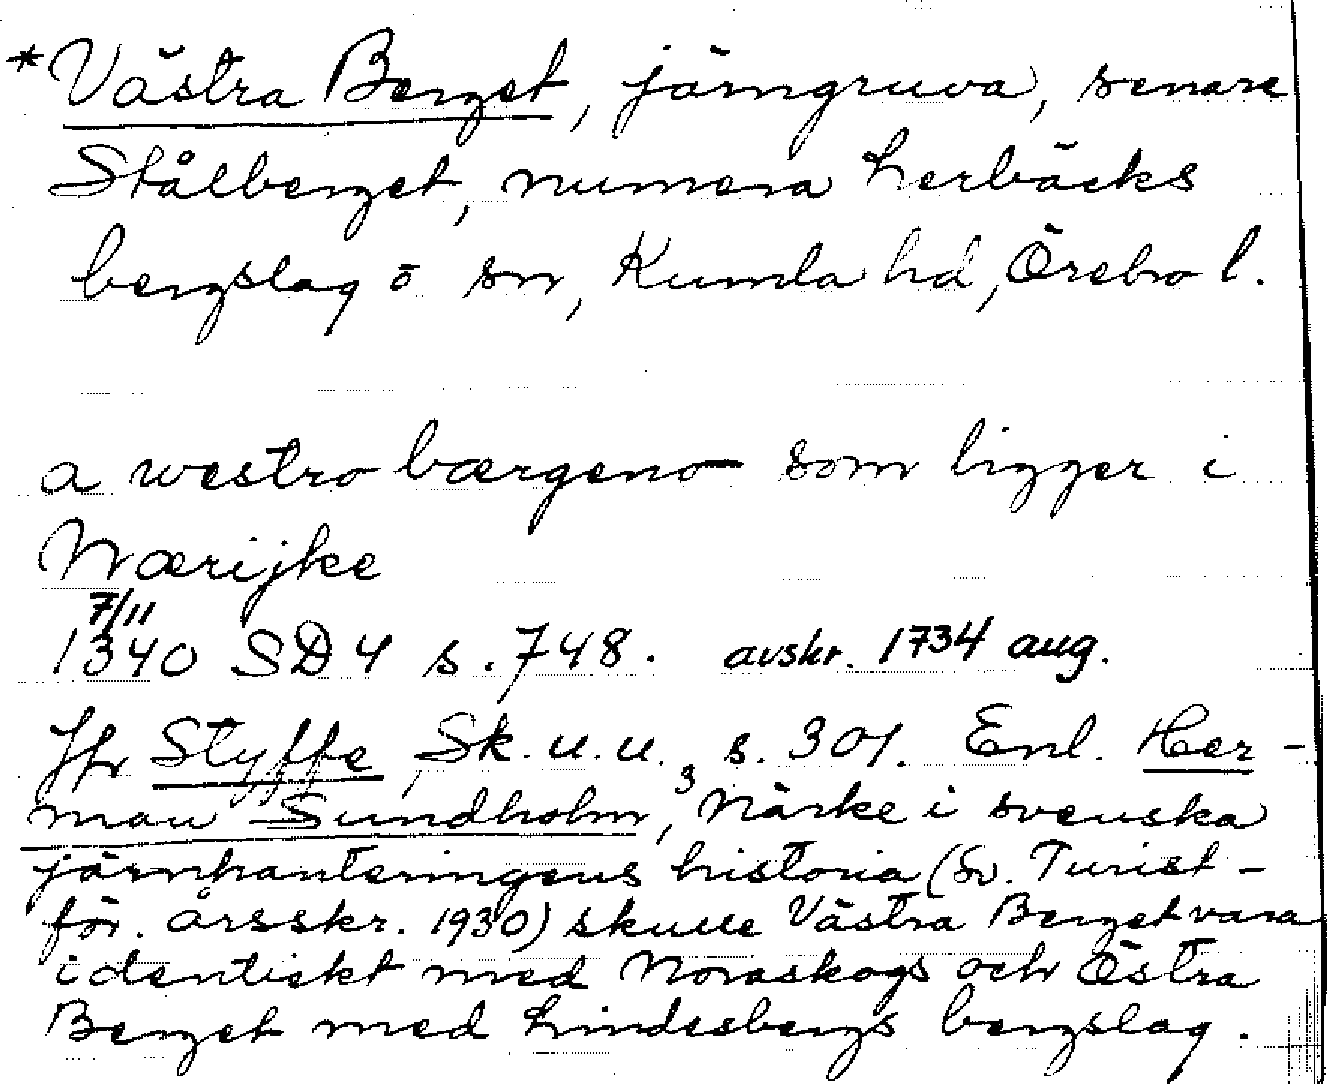 *Västra Berget, järngruva, senare
Stålberget, numera Lerbäcks
bergslag o sn, Kumla hd, Örebro l.
a westro bærgeno som ligger i
Nærijke
7/11
1340 SD 4 s. 748. avskr. 1734 aug.
Jfr Styffe, Sk.u.u.³, s. 301. Enl. Her-
man Sundholm, Närke i svenska
järnhanteringens historia (Sv. Turist-
för. årsskr. 1930) skulle Västra Berget vara
identiskt med Noraskogs och Östra
Berget med Lindesbergs bergslag.